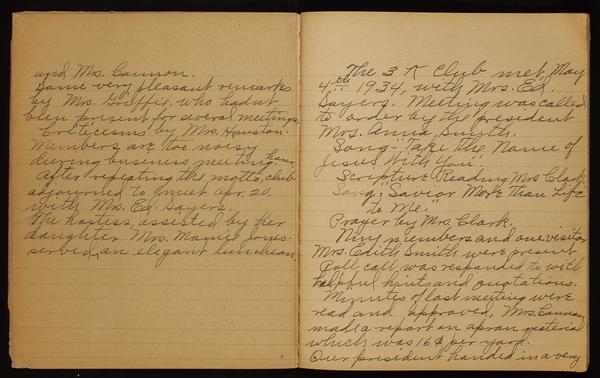 and Mrs. Cannon.
Some very pleasant remarks
by Mrs. Griffie, who hadnt
been present for several meetings,
Creticesms by Mrs. Houston.
Members are too noisy
during business meeting hour,
After repeating the motto, club
adjourned to meet Apr. 20.
with Mrs. Ed. Sayers.
The hostess, assisted by her
daughter Mrs. Mamie Jones
served an elegant luncheon.
The 3 K Club met, May
4th 1934, with Mrs. Ed.
Sayers. Meeting was called
to order by the president
Mrs. Anna Smith.
Song "Take the Name of
Jesus With You".
Scripture Reading Mrs. Clark
Song; "Savior More Than Life
to Me."
Prayer by Mrs. Clark.
Niny members and one visitor
Mrs. Edith Smith were present
Roll call was responded to with
helpful hints and quotations.
Minutes of last meeting were
read and approved, Mrs. Cannon
made a report on apron material
which was 16¢ per yard.
Over president handed in a very